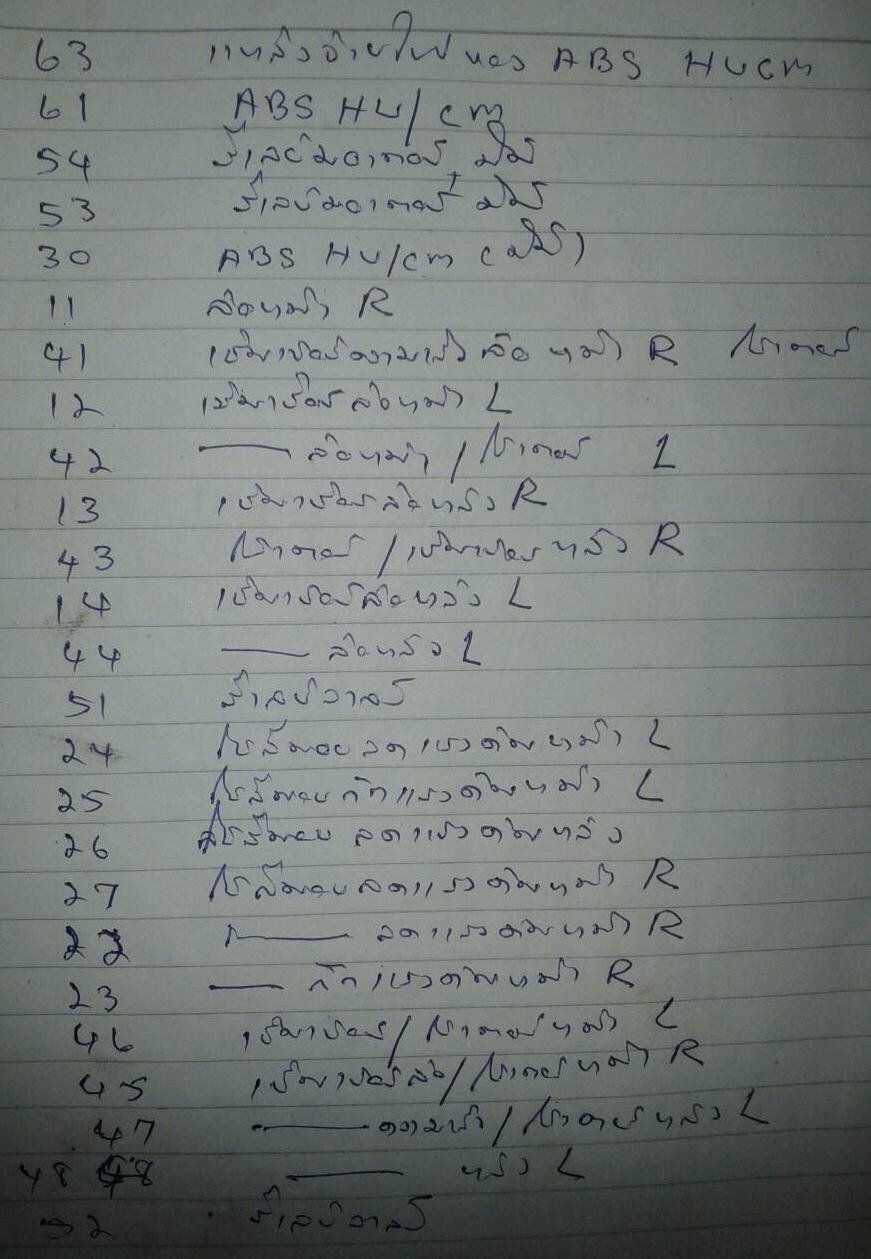 63 แหล่งจ่ายไฟของ ABS HUCM
61 ABS HU/CM
54 รีเลย์มอเตอร์ปั๊ม
53 รีเลย์มอเตอร์ปั๊ม
30 ABS HU/CM (ปั๊ม)
11 ล้อหน้า R
41 เซ็นเซอร์ความเร็วล้อหน้า R โรเตอร์
12 เซ็นเซอร์ล้อหน้า L
42 —— ล้อหน้า / โรเตอร์ L
13 เซ็นเซอร์ล้อหลัง R
43 โรเตอร์ / เซ็นเซอร์หลัง R
14 เซ็นเซอร์ล้อหลัง L
44 —— ล้อหลัง L
51 รีเลย์วาล์ว
24 โซลินอย ลดแรงดันหน้า L
25 โซลินอย กักแรงดันหน้า L
26 โซลินอย ลดแรงดันหลัง
27 โซลินอยลดแรงดันหน้า R
22 —— ลดแรงดันหน้า R
23 —— กักแรงดันหน้า R
46 เซ็นเซอร์/โรเตอร์หน้า L
45 เซ็นเซอร์ล้อ/โรเตอร์หน้า R
47 —— /โรเตอร์หลัง L
48 —— หลัง L
52 รีเลย์วาล์ว